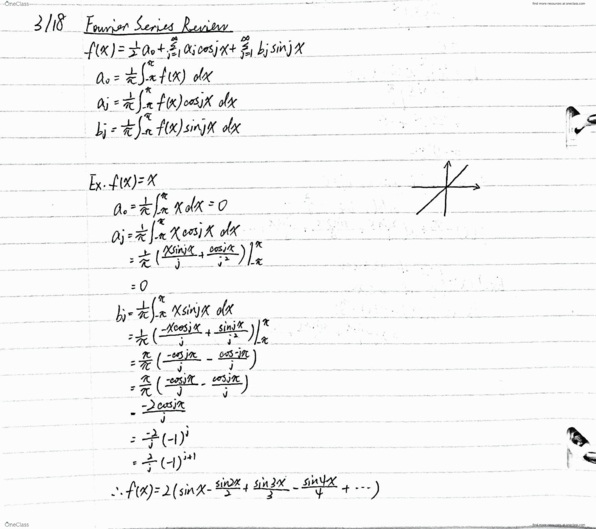 OneClass
find more resources at oneclass.com
3/18 Fourier Series Review
f(x) = 1/2 a₀ + ∞Σj=1 aj cosjx + ∞Σj=1 bj sinjx
a₀ = 1/π ∫_-π^π f(x) dx
aj = 1/π ∫_-π^π f(x) cosjx dx
bj = 1/π ∫_-π^π f(x) sinjx dx
Ex. f(x) = x
a₀ = 1/π ∫_-π^π x dx = 0
aj = 1/π ∫_-π^π x cosjx dx
= 1/π (xsinjx/j + cosjx/j²) |_-π^π
= 0
bj = 1/π ∫_-π^π x sinjx dx
= 1/π (-xcosjx/j + sinjx/j²) |_-π^π
= π/π (-cosjπ/j - cos-jπ/j)
= π/π (-cosjπ/j - cosjπ/j)
= -2cosjπ/j
= -2/j (-1)^j
= 2/j (-1)^j+1
∴ f(x) = 2(sinx - sin2x/2 + sin3x/3 - sin4x/4 + ⋯)
OneClass
find more resources at oneclass.com